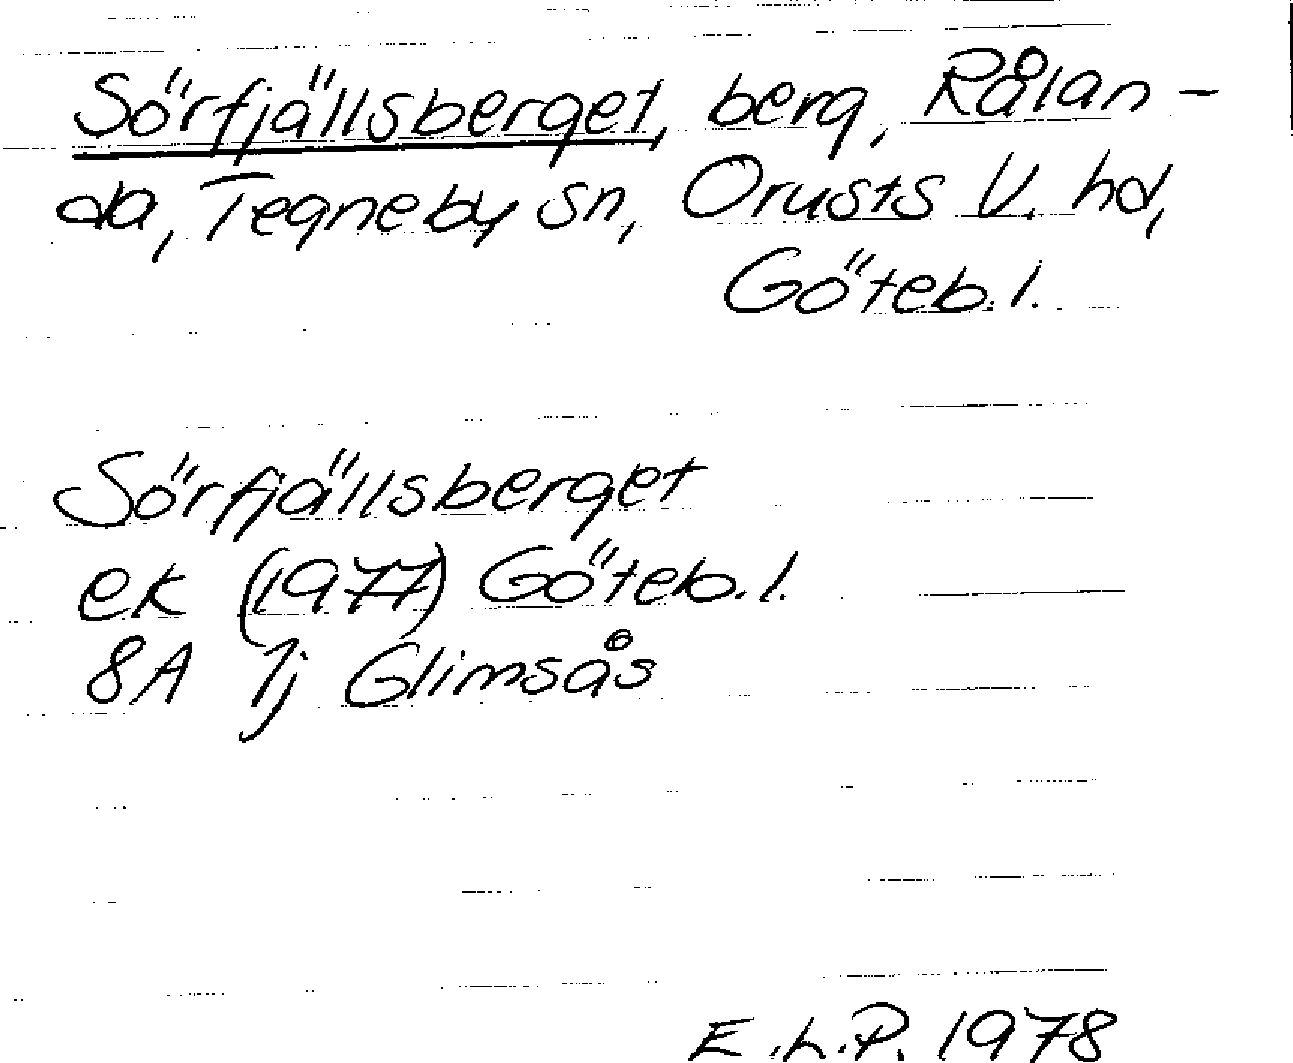 Sörfjällsberget, berg, Rålan-
da, Tegneby sn, Orusts V. hd,
Göteb. l.
Sörfjällsberget
ek (1977) Göteb. l.
8A 1j Glimsås
E.L.P. 1978